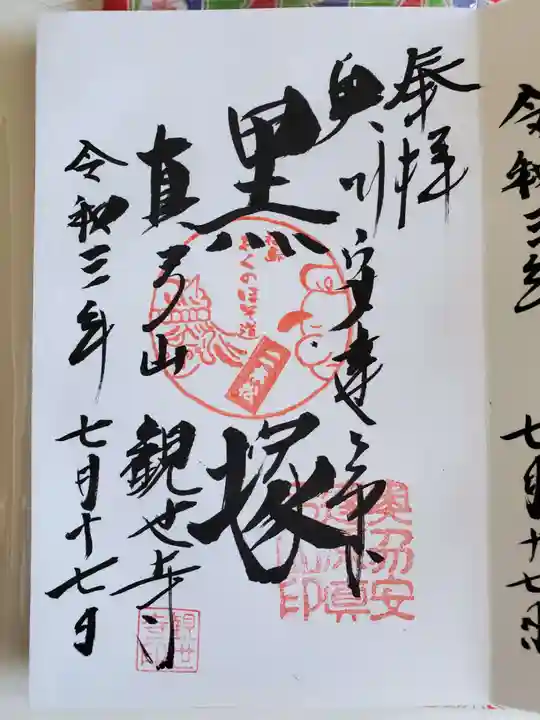 奉拝
奥州安達ケ原
黒塚
真弓山
観世寺
令和三年
七月十七日
おくのほそ道
二本松
奥州安
達原真
弓山印
観世
寺印
令和三年
七月十七日